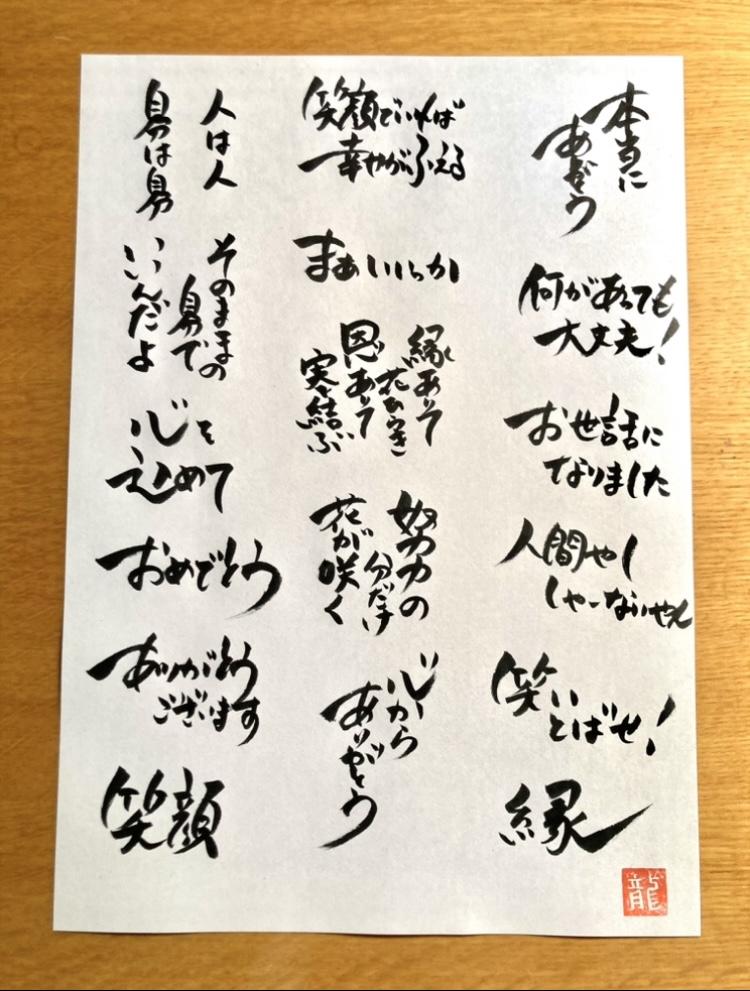 本当に
ありがとう
何があっても
大丈夫！
お世話に
なりました
人間やし
しゃーないやん
笑い
とばせ！
縁
龍
笑顔でいれば
幸せがふえる
まあいっか
縁ありて
花ひらき
恩ありて
実を結ぶ
努力の
分だけ
花が咲く
心から
ありがとう
人は人
自分は自分
そのままの
自分で
いいんだよ
心を
込めて
おめでとう
ありがとう
ございます
笑顔